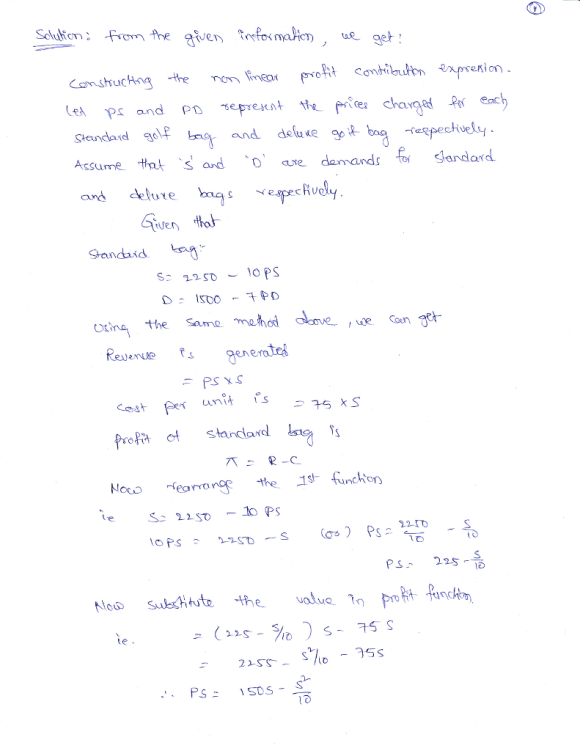 1
Solution: From the given information, we get:
Constructing the non linear profit contribution expression.
Let PS and PD represent the prices charged for each
Standard golf bag and deluxe golf bag respectively.
Assume that 'S' and 'D' are demands for standard
and deluxe bags respectively.
Given that
Standard bag:-
S= 2250 - 10PS
D= 1500 - 7PD
Using the same method above, we can get
Revenue is generated
= PS×S
Cost per unit is = 75×S
Profit of standard bag is
π = R-C
Now rearrange the 1st function
ie S= 2250 - 10 PS
10PS = 2250 - S (or) PS = 2250/10 - S/10
PS = 225 - S/10
Now substitute the value in profit function
ie. = (225 - S/10) S - 75S
= 225S - S²/10 - 75S
∴ PS = 150S - S²/10